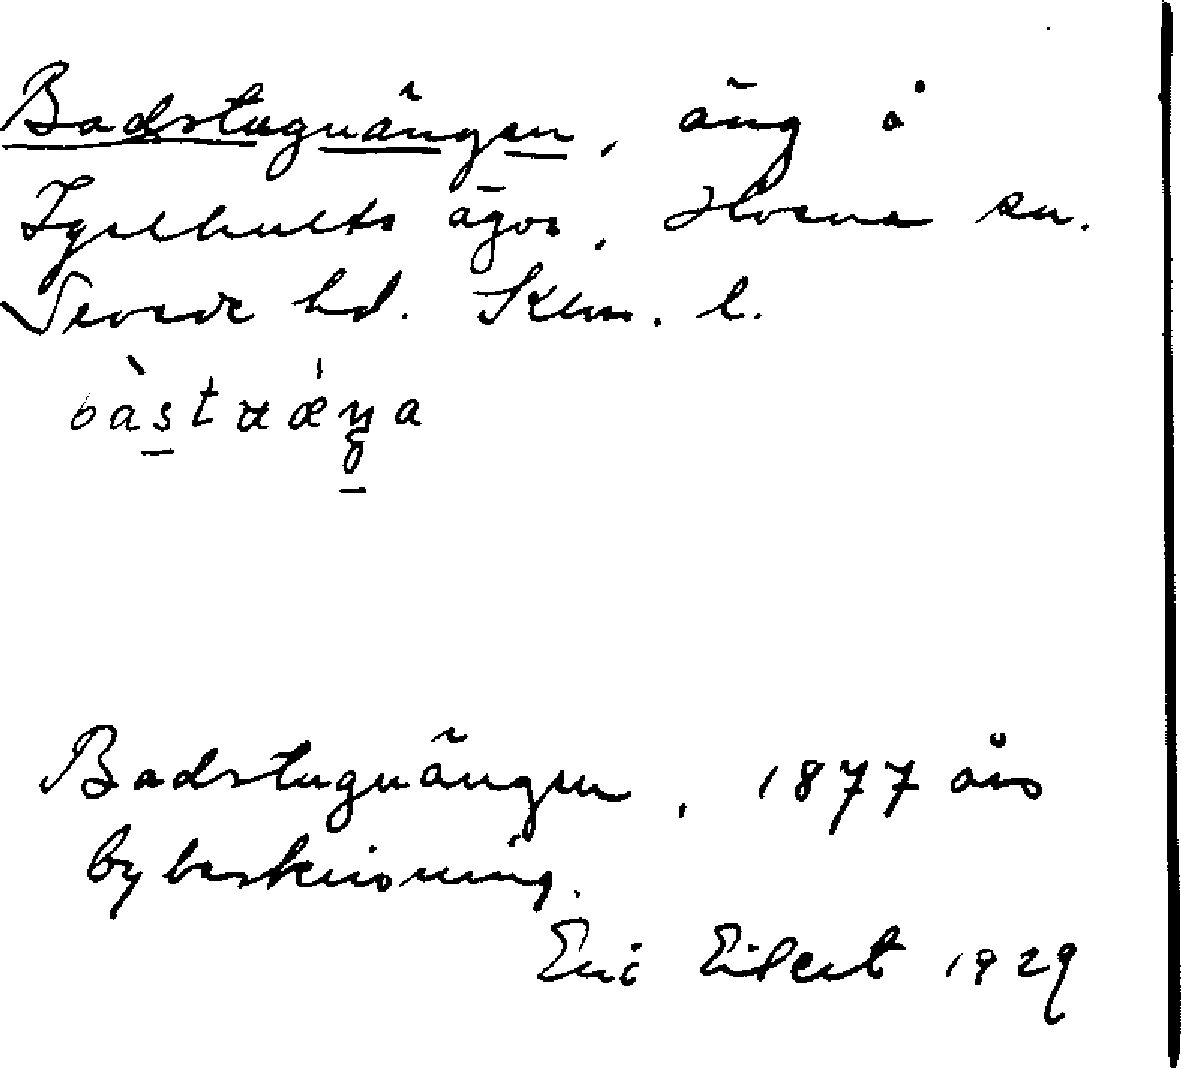 Badstuguängen, äng å
Igelhults ägor, Hvena sn.
Sevede hd. Klm. l.
bàs̱tɑǽŋa
Badstuguängen, 1877 års
bybeskrivning.
Eric Eilert 1929